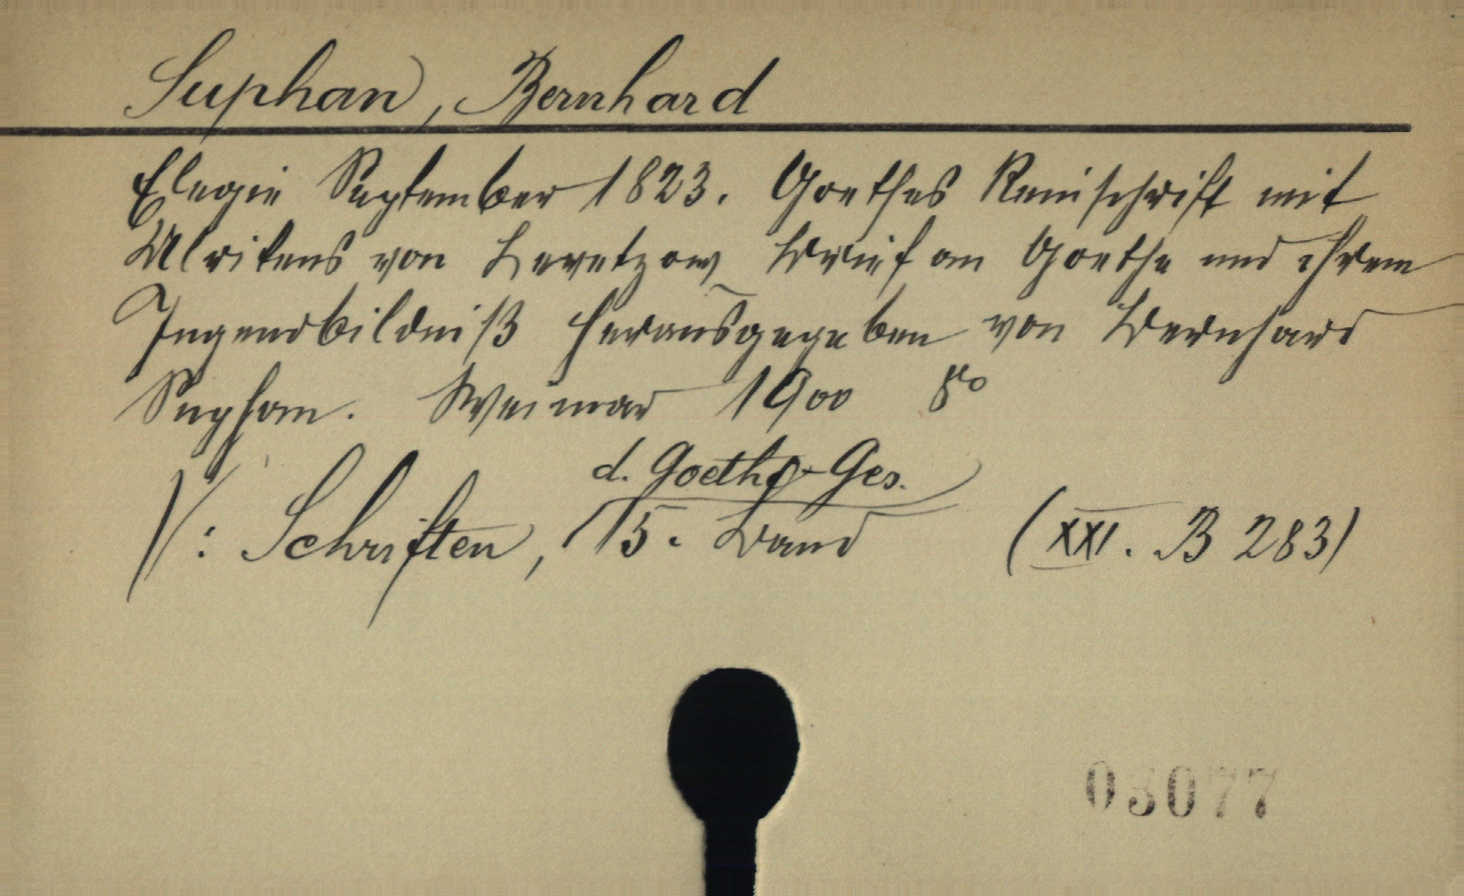 Suphan, Bernhard
Elegie September 1823. Goethes Reinschrift mit
Ulrikens von Levetzow Brief an Goethe und ihrem
Jugendbildniß herausgegeben von Bernhard
Suphan. Weimar 1900 8vo
d. Goethe-Ges.
V: Schriften, 15. Band (XXI. B 283)
03077